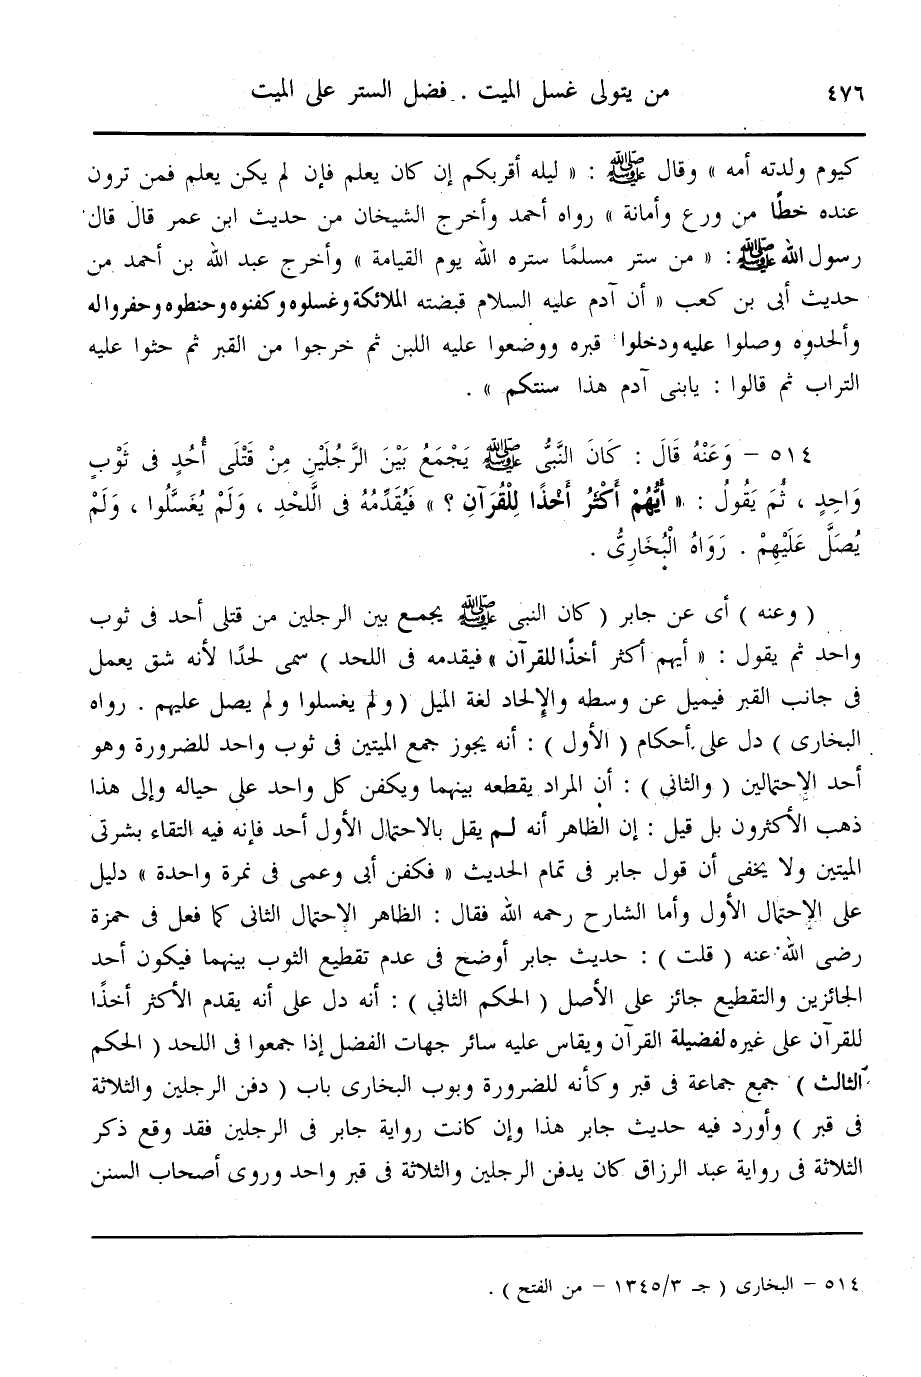 ٤٧٦ من يتولى غسل الميت . فضل الستر على الميت
كيوم ولدته أمه » وقال ﷺ : « ليله أقربكم إن كان يعلم فإن لم يكن يعلم فمن ترون
عنده خطًّا من ورع وأمانة » رواه أحمد وأخرج الشيخان من حديث ابن عمر قال قال
رسول الله ﷺ : « من ستر مسلمًا ستره الله يوم القيامة » وأخرج عبد الله بن أحمد من
حديث أبى بن كعب « أن آدم عليه السلام قبضته الملائكة وغسلوه وكفنوه وحنطوه وحفروا له
وألحدوه وصلوا عليه ودخلوا قبره ووضعوا عليه اللبن ثم خرجوا من القبر ثم حثوا عليه
التراب ثم قالوا : يابنى آدم هذا سنتكم » .
٥١٤ – وَعَنْهُ قَالَ : كَانَ النَّبىُّ ﷺ يَجْمَعُ بَيْنَ الرَّجُلَيْنِ مِنْ قَتْلَى أُحُدٍ فى ثَوْبٍ
وَاحِدٍ ، ثُمَ يَقُولُ : « أَيُّهُمْ أَكْثَرُ أَخْذًا لِلْقُرَآنِ ؟ » فَيُقَدِّمُهُ فى اللَّحْدِ ، وَلَمْ يُغَسَّلُوا ، وَلَمْ
يُصَلَّ عَلَيْهِمْ . رَوَاهُ الْبُخَارِىُّ .
( وعنه ) أى عن جابر ( كان النبى ﷺ يجمع بين الرجلين من قتلى أحد فى ثوب
واحد ثم يقول : « أيهم أكثر أخذًا للقرآن » فيقدمه فى اللحد ) سمى لحدًا لأنه شق يعمل
فى جانب القبر فيميل عن وسطه والإلحاد لغة الميل ( ولم يغسلوا ولم يصل عليهم . رواه
البخارى ) دل على أحكام ( الأول ) : أنه يجوز جمع الميتين فى ثوب واحد للضرورة وهو
أحد الإحتمالين ( والثانى ) : أن المراد يقطعه بينهما ويكفن كل واحد على حياله وإلى هذا
ذهب الأكثرون بل قيل : إن الظاهر أنه لم يقل بالاحتمال الأول أحد فإنه فيه التقاء بشرتى
الميتين ولا يخفى أن قول جابر فى تمام الحديث « فكفن أبى وعمى فى نمرة واحدة » دليل
على الإحتمال الأول وأما الشارح رحمه الله فقال : الظاهر الإحتمال الثانى كما فعل فى حمزة
رضى الله عنه ( قلت ) : حديث جابر أوضح فى عدم تقطيع الثوب بينهما فيكون أحد
الجائزين والتقطيع جائز على الأصل ( الحكم الثانى ) : أنه دل على أنه يقدم الأكثر أخذًا
للقرآن على غيره لفضيلة القرآن ويقاس عليه سائر جهات الفضل إذا جمعوا فى اللحد ( الحكم
الثالث ) جمع جماعة فى قبر وكأنه للضرورة وبوب البخارى باب ( دفن الرجلين والثلاثة
فى قبر ) وأورد فيه حديث جابر هذا وإن كانت رواية جابر فى الرجلين فقد وقع ذكر
الثلاثة فى رواية عبد الرزاق كان يدفن الرجلين والثلاثة فى قبر واحد وروى أصحاب السنن
٥١٤ – البخارى ( جـ ١٣٤٥/٣ – من الفتح ) .